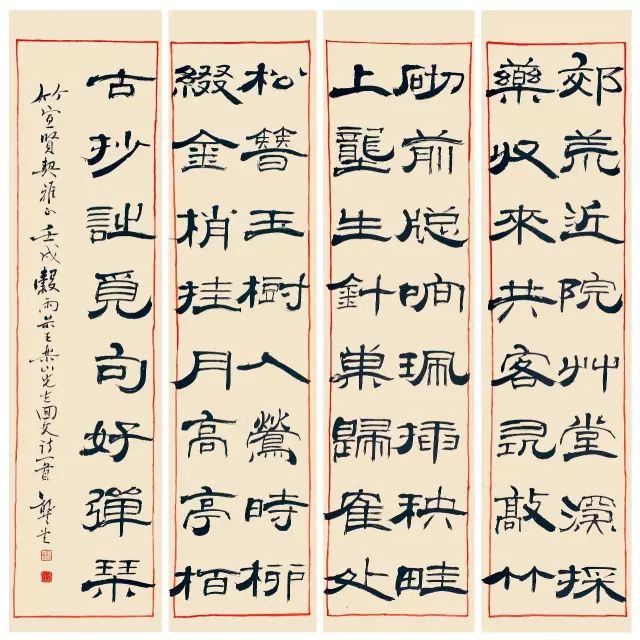 郊荒近院艸堂深採
藥收來共客尋敲竹
砌前牕响珮插秧畦
上壟生針巢歸雀处
松簪玉樹入鶯時柳
綴金梢挂月高亭栢
古抄詩覓句好彈琴
竹宣賢契雅正 壬戌穀雨 王樂山先生回文詩一首 龔望